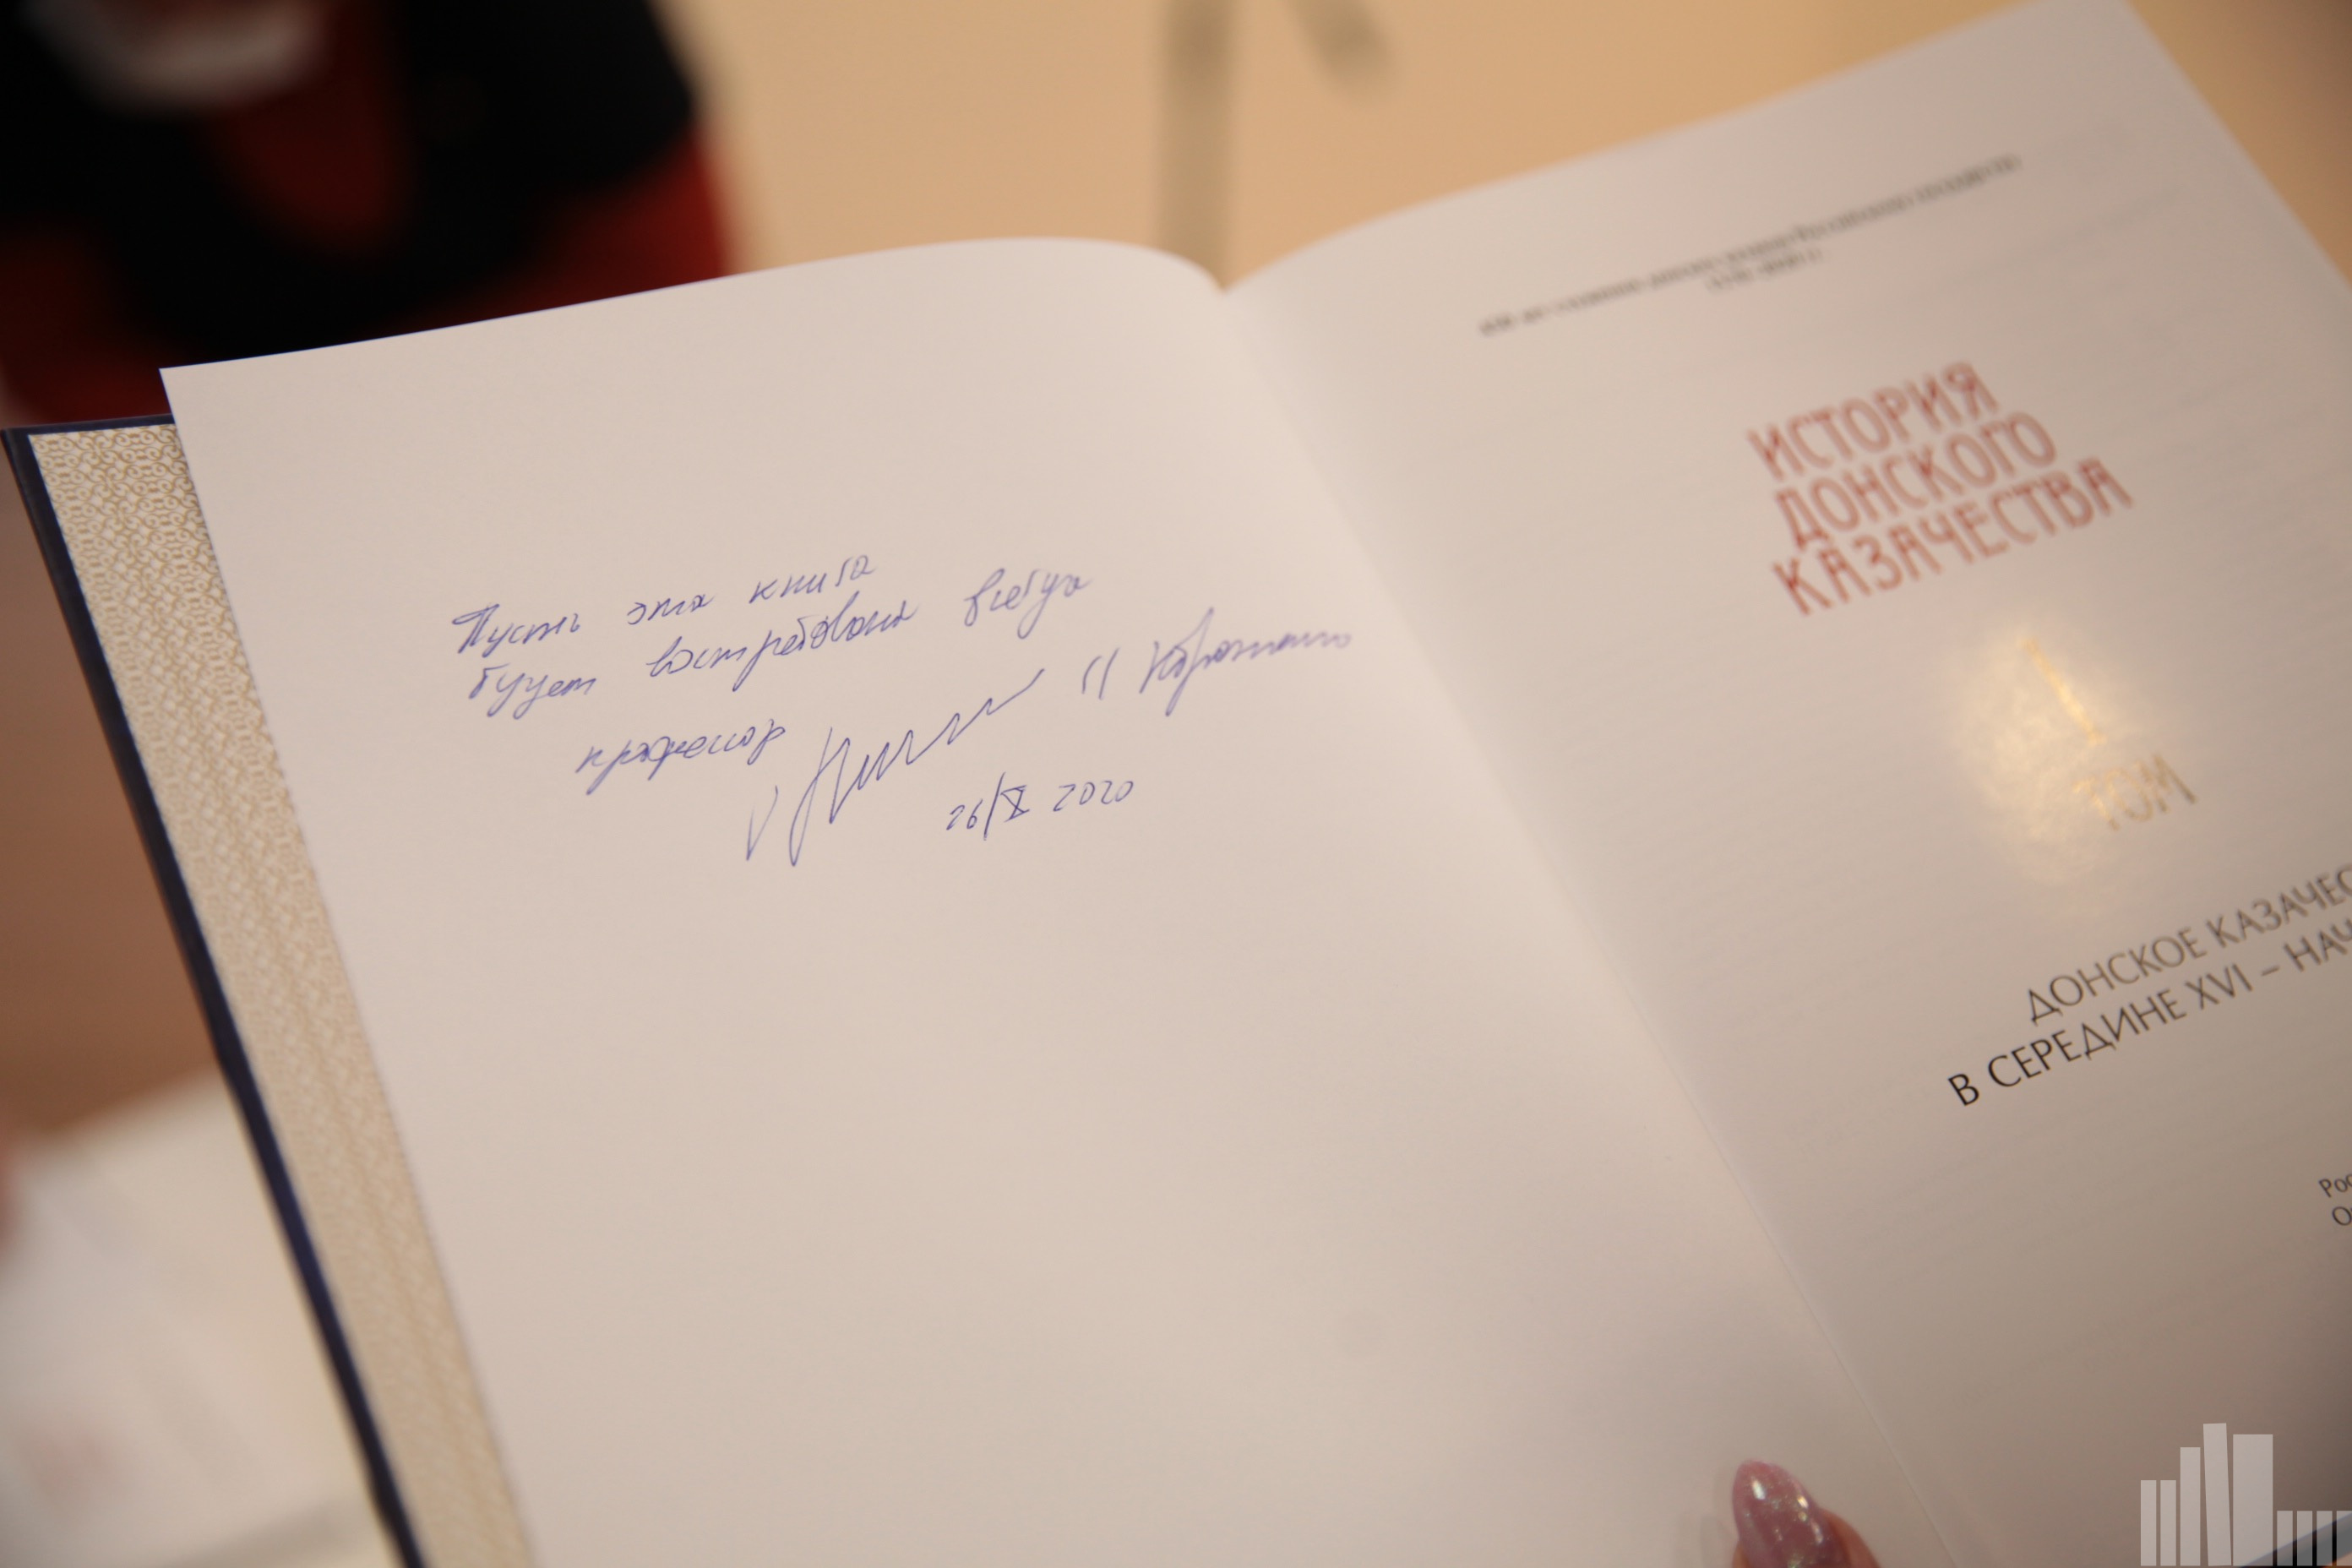 Пусть эта книга
будет востребована всегда
профессор
26/X 2020
ИСТОРИЯ
ДОНСКОГО
КАЗАЧЕСТВА
1
ТОМ
ДОНСКОЕ КАЗАЧЕС
В СЕРЕДИНЕ XVI – НАЧ
Рос